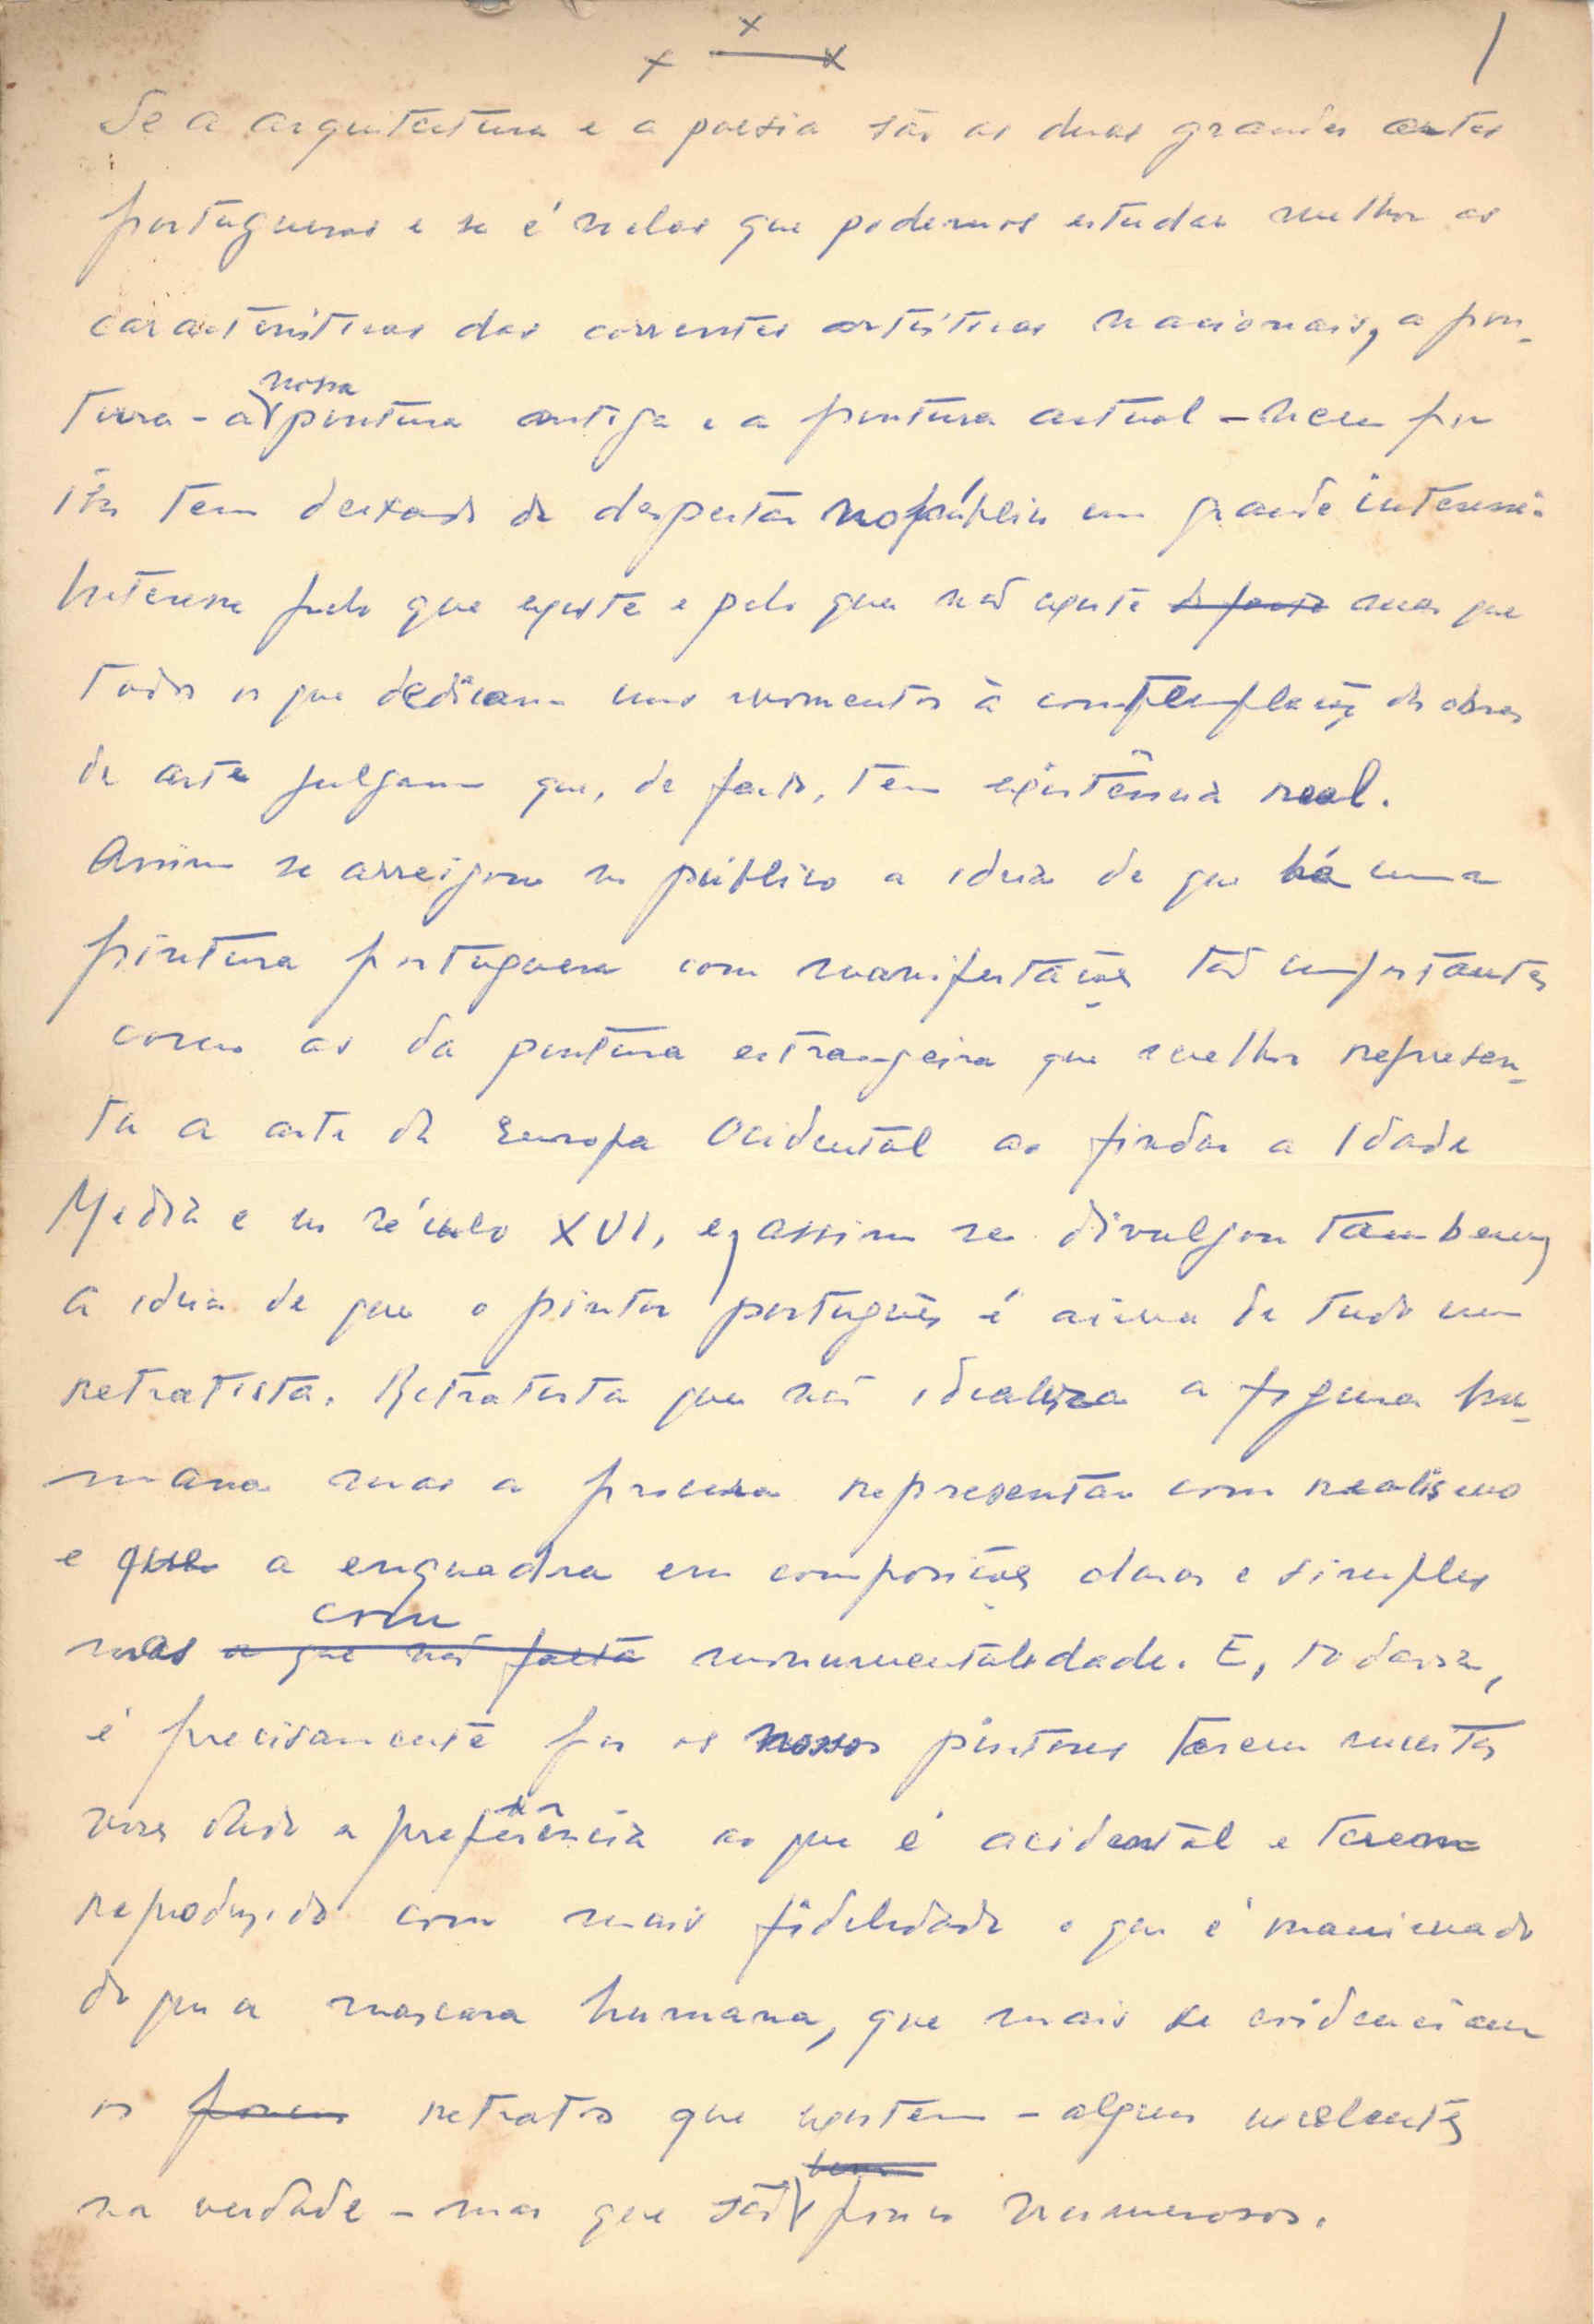 x
x — x
1
Se a arquitectura e a poesia são as duas grandes artes
portuguesas e se é nelas que podemos estudar melhor as
caracteristicas das correntes artisticas nacionais, a pin-
tura - a nossa pintura antiga e a pintura actual - nem por
isso tem deixado de despertar no público um grande interesse.
Interesse pelo que existe e pelo que não existe de facto mas que
todos os que dedicam uns momentos à contemplação de obras
de arte julgam que, de facto, tem existência real.
Assim se arreigou no público a ideia de que há uma
pintura portuguesa com manifestações tão importantes
como as da pintura estrangeira que melhor represen-
ta a arte da Europa Ocidental ao findar a Idade
Media e no século XVI, e, assim se divulgou tambem,
a ideia de que o pintor português é acima de tudo um
retratista. Retratista que não idealiza a figura hu-
mana mas a procura representar com realismo
e que a enquadra em composições claras e simples
mas a que não falta com monumentalidade. E, todavia,
é precisamente por os nossos pintores terem muitas
vezes dado a preferência ao que é acidental e terem
reproduzido com mais fidelidade o que é inanimado
do que a mascara humana, que mais se evidenciam
os poucos retratos que existem - alguns excelentes
na verdade - mas que são bem pouco numerosos.